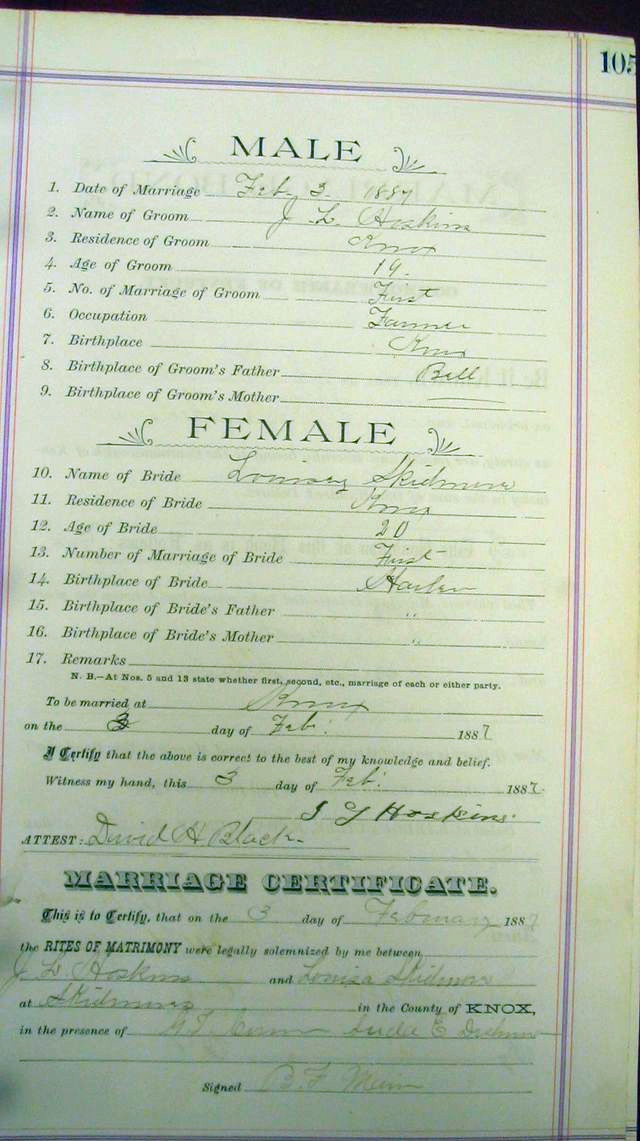 105
MALE
1. Date of Marriage Feb 3 1887
2. Name of Groom J L Hoskins
3. Residence of Groom Knox
4. Age of Groom 19.
5. No. of Marriage of Groom First
6. Occupation Farmer
7. Birthplace Knox
8. Birthplace of Groom's Father Bell
9. Birthplace of Groom's Mother
FEMALE
10. Name of Bride Louisey Skidmore
11. Residence of Bride Knox
12. Age of Bride 20
13. Number of Marriage of Bride First
14. Birthplace of Bride Harlan
15. Birthplace of Bride's Father "
16. Birthplace of Bride's Mother "
17. Remarks
N. B.—At Nos. 5 and 13 state whether first, second, etc., marriage of each or either party.
To be married at Knox
on the 3 day of Feb. 1887
I Certify that the above is correct to the best of my knowledge and belief.
Witness my hand, this 3 day of Feb. 1887.
J L Hoskins.
ATTEST: David H Black
MARRIAGE CERTIFICATE.
This is to Certify, that on the 3 day of February 1887
the RITES OF MATRIMONY were legally solemnized by me between
J L Hoskins and Louisa Skidmore
at Skidmores in the County of KNOX,
in the presence of E
Signed B. F.